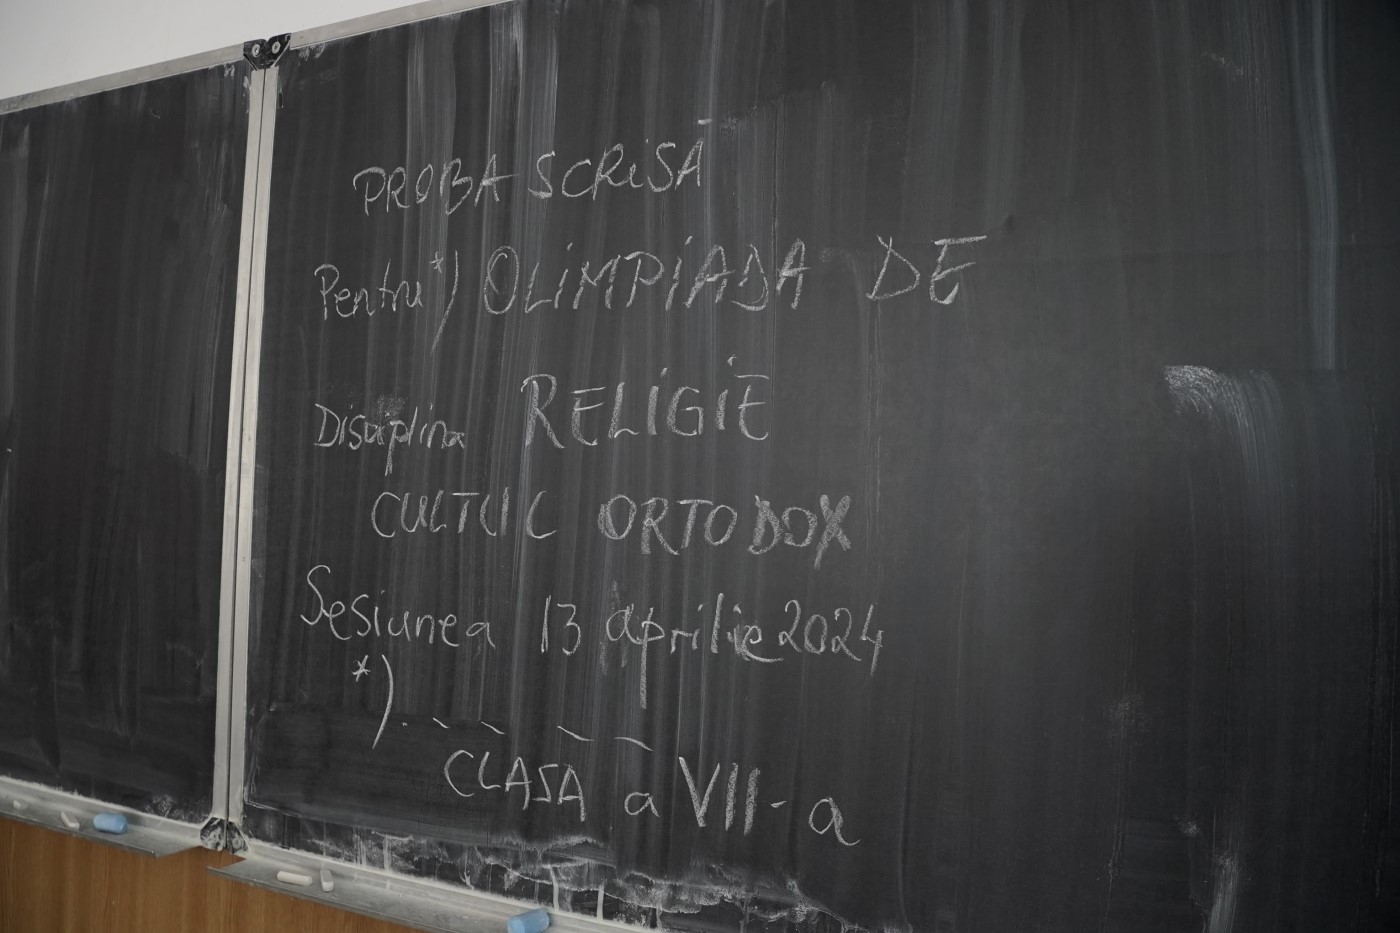 PROBA SCRISĂ
Pentru*) OLIMPIADA DE
Disciplina RELIGIE
CULTUL ORTODOX
Sesiunea 13 aprilie 2024
*)
CLASA a VII-a